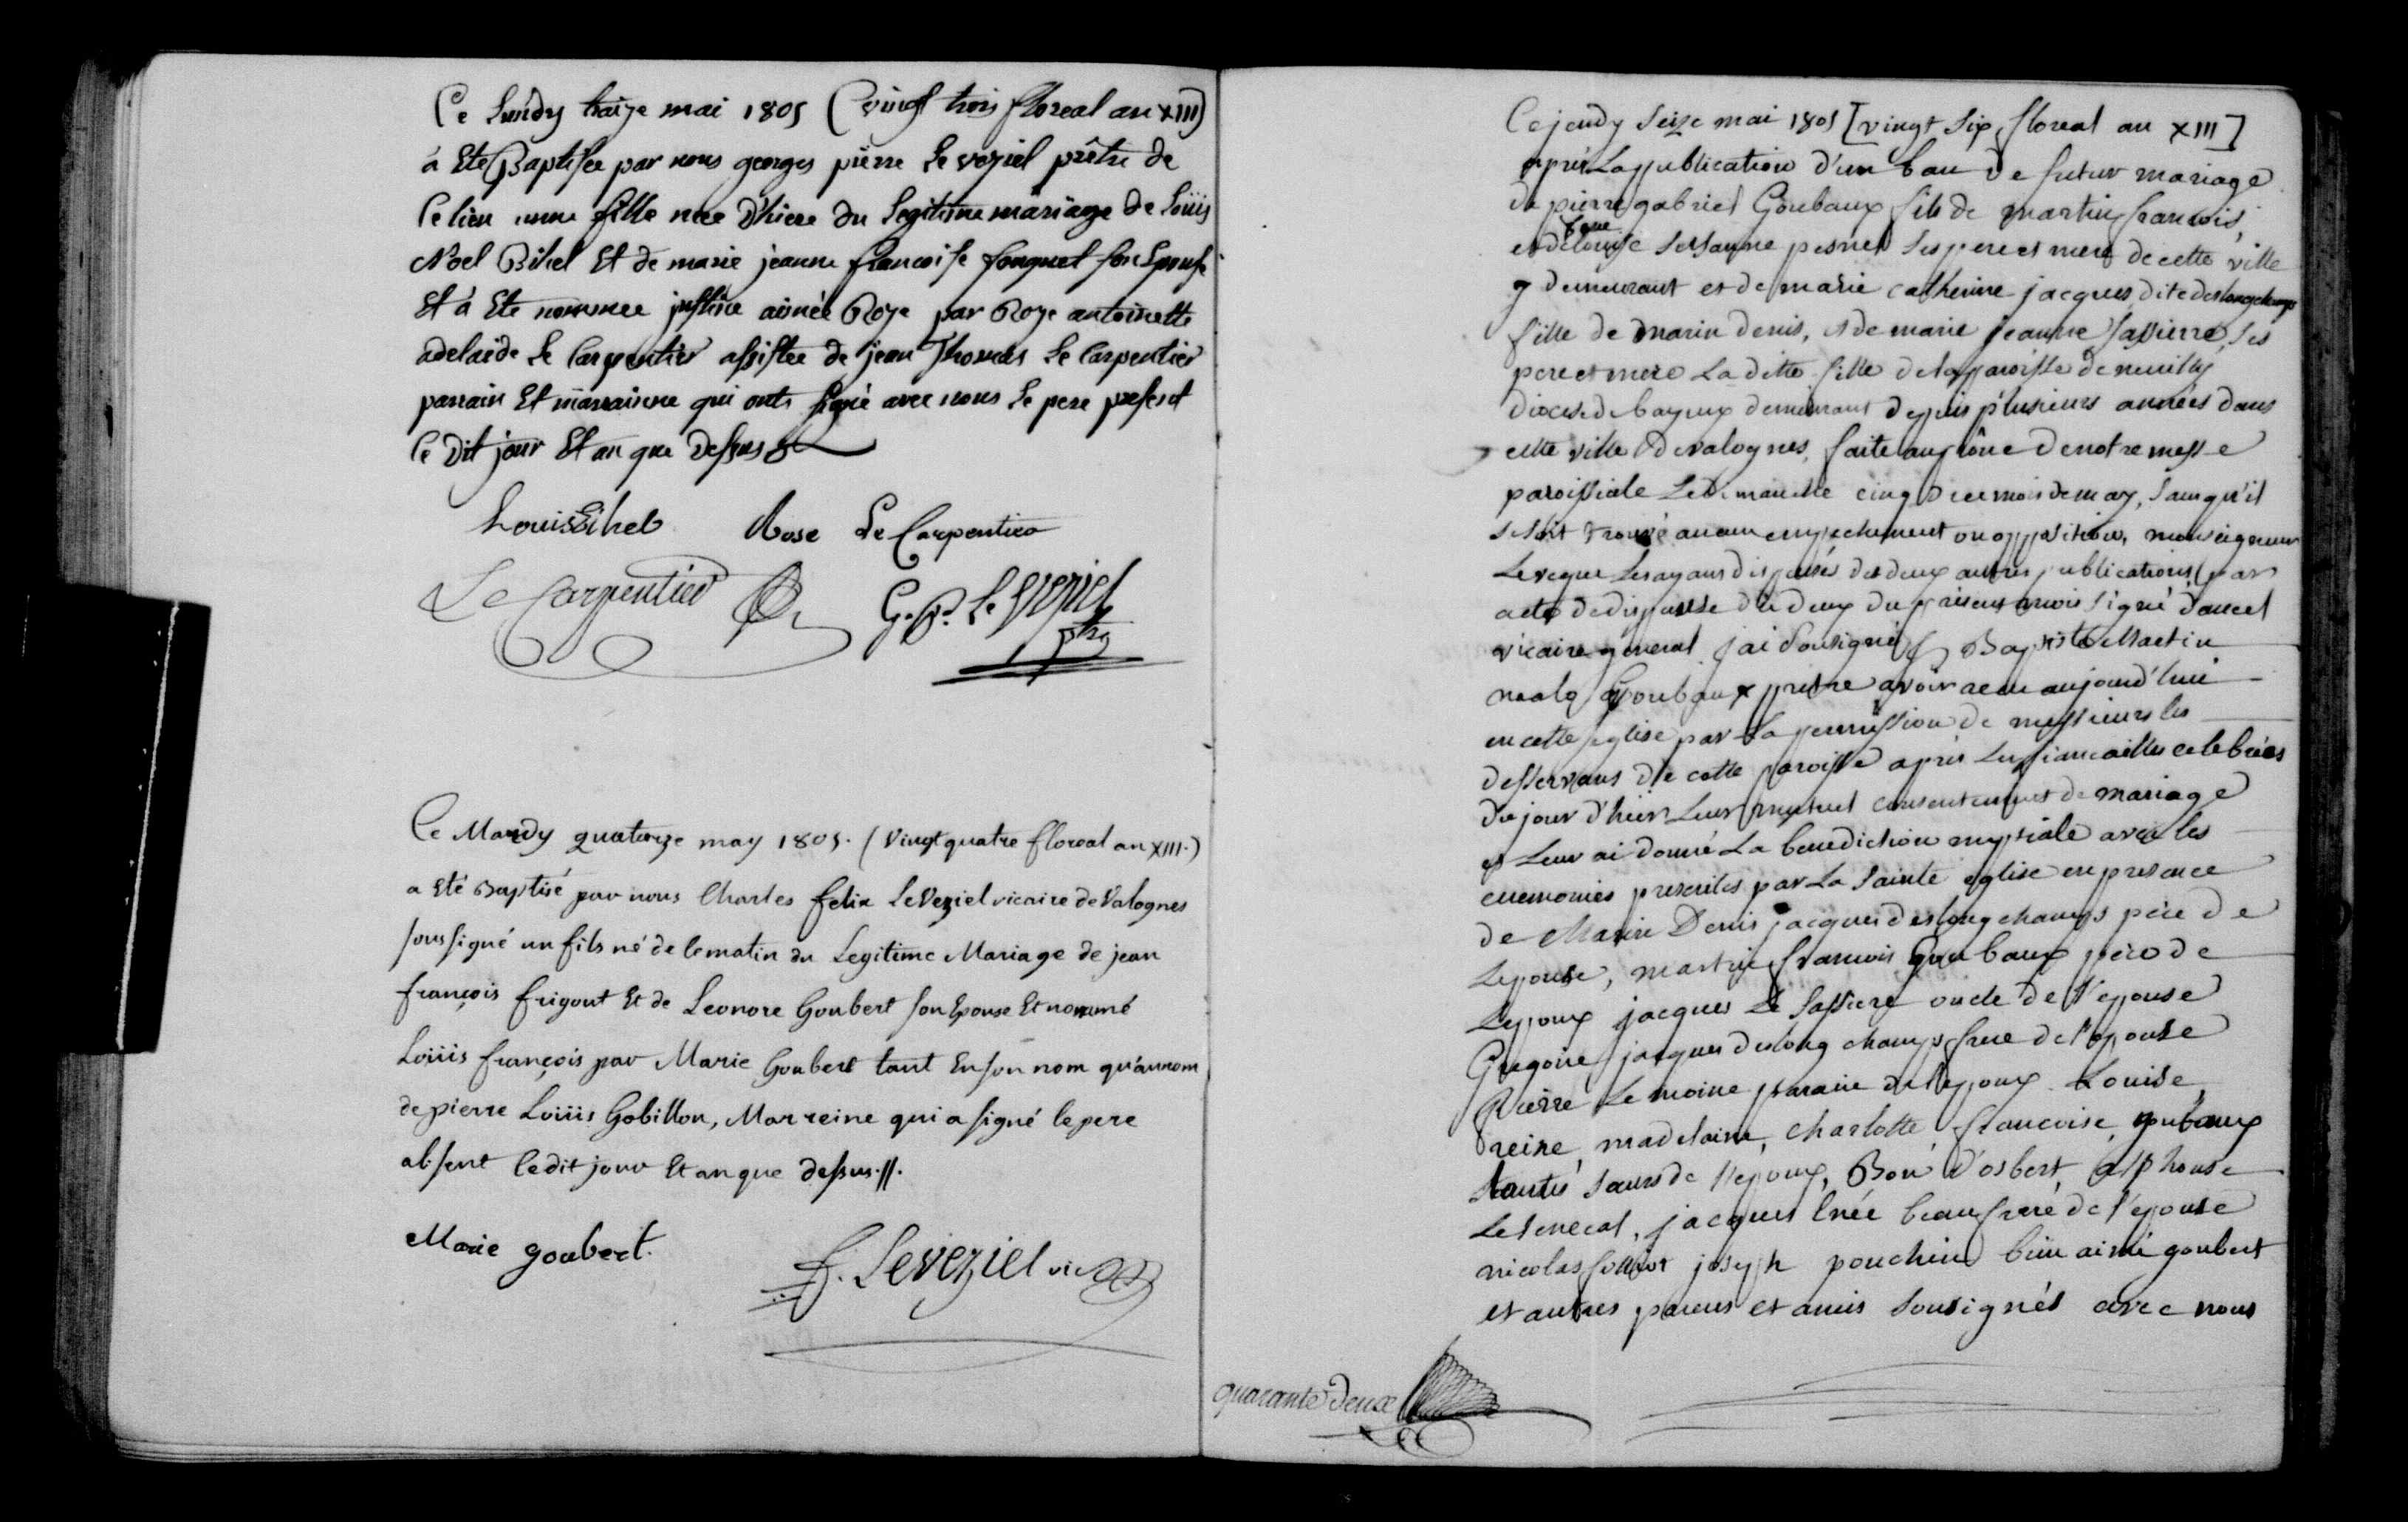 Ce Lundy traize mai 1805 (vingt trois floreal an XIII)
à Ete Baptisée par nous georges pierre Le veziel prêtre de
Ce lieu une fille née d'hiere du Legitime mariage de Loüis
Noel Bihel Et de marie jeanne francoise fouquet son Epouse
Et à Ete nommee justine aimée Roze par Roze antoinette
adelaïde Le Carpentier assistee de jean Thomas Le Carpentier
parrain Et marrainne qui onts signé avec nous Le pere present
Ce dit jour Et an que dessus
Louis Bihel Rose Le Carpentier
Le Carpentier G. P. Le Veziel
ptre
Ce Mardy quatorze may 1805. (vingt quatre floreal an XIII.)
a Eté Baptisé par nous Charles felix Le Veziel vicaire de Valognes
soussigné un fils né de ce matin du Legitime Mariage de jean
françois frigout Et de Leonore Goubert son Epouse Et nommé
Loüis françois par Marie Goubert tant En son nom qu'au nom
de pierre Loüis Gobillon, Marreine qui a signé le pere
absent Cedit jour Et an que dessus.//.
Marie goubert.
f. Le veziel vic
Ce jeudy Seize mai 1805 [vingt Six floreal an XIII]
après La publication d'un ban de futur mariage
de pierre gabriel Goubaux fils de martin francois,
et de Louise Susanne pesnel Ses pere et mere de cette ville
y demeurant et de marie catherine jacques dite deslongchamps
fille de marin denis, et de marie jeanne Lassiere, Ses
pere et mere La ditte fille de la paroisse de neuilly
diocese de bayeux demeurant depuis plusieurs années dans
cette ville de valognes, faite au prône de notre messe
paroissiale Le dimanche cinq de ce mois de may, Sans qu'il
se soit trouvé aucun empechement ou opposition, monseigneur
Leveque Les ayans dispensés des deux autres publications par
acte de dispense du deux du present mois signé dancel
vicaire general j'ai Sousigné Baptiste Martin
Goubaux pretre avoir recu aujourd'hui
en cette eglise par La permission de messieurs les
desservans de cette paroisse après Les fiancailles celebrées
du jour d'hier Leur mutuel consentement de mariage
et Leur ai donné La benediction nuptiale avec les
ceremonies prescrites par La Sainte eglise en presence
de Marin Denis jacques deslongchamps père de
Lepouse, martin francois Goubaux père de
Lepoux jacques Le Lassiere oncle de l'epouse
Gregoire jacques deslong champs frere de l'epouse
Pierre Le moine parain de l'epoux Louise,
reine, madelaine, charlotte, francoise, goubaux
toutes soeurs de l'epoux, Bon d'osbert, alphonse
Le Senecal, jacques Enée beaufrere de l'epouse
nicolas folliot joseph pouchin bien aimé goubert
et autres parens et amis Sousignés avec nous
quarante deux